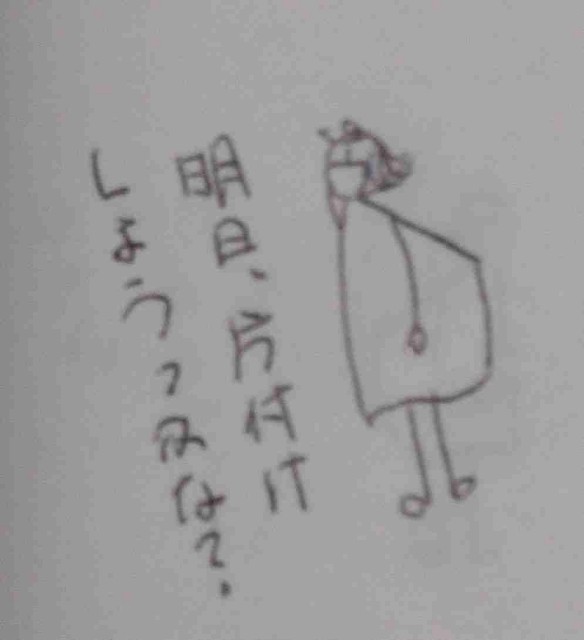 明日、片付け
しようかな?